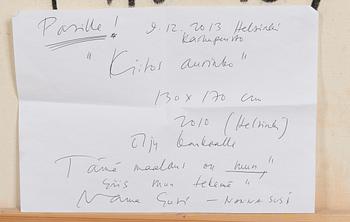 Pasille! 9.12.2013 Helsinki
"Kiitos aurinko"
130 x 170 cm
2010 (Helsinki)
Öljy kankaalle
Tämä maalaus on "mun"
siis mun tekemä"
Nanna Susi - NANNA SUSI